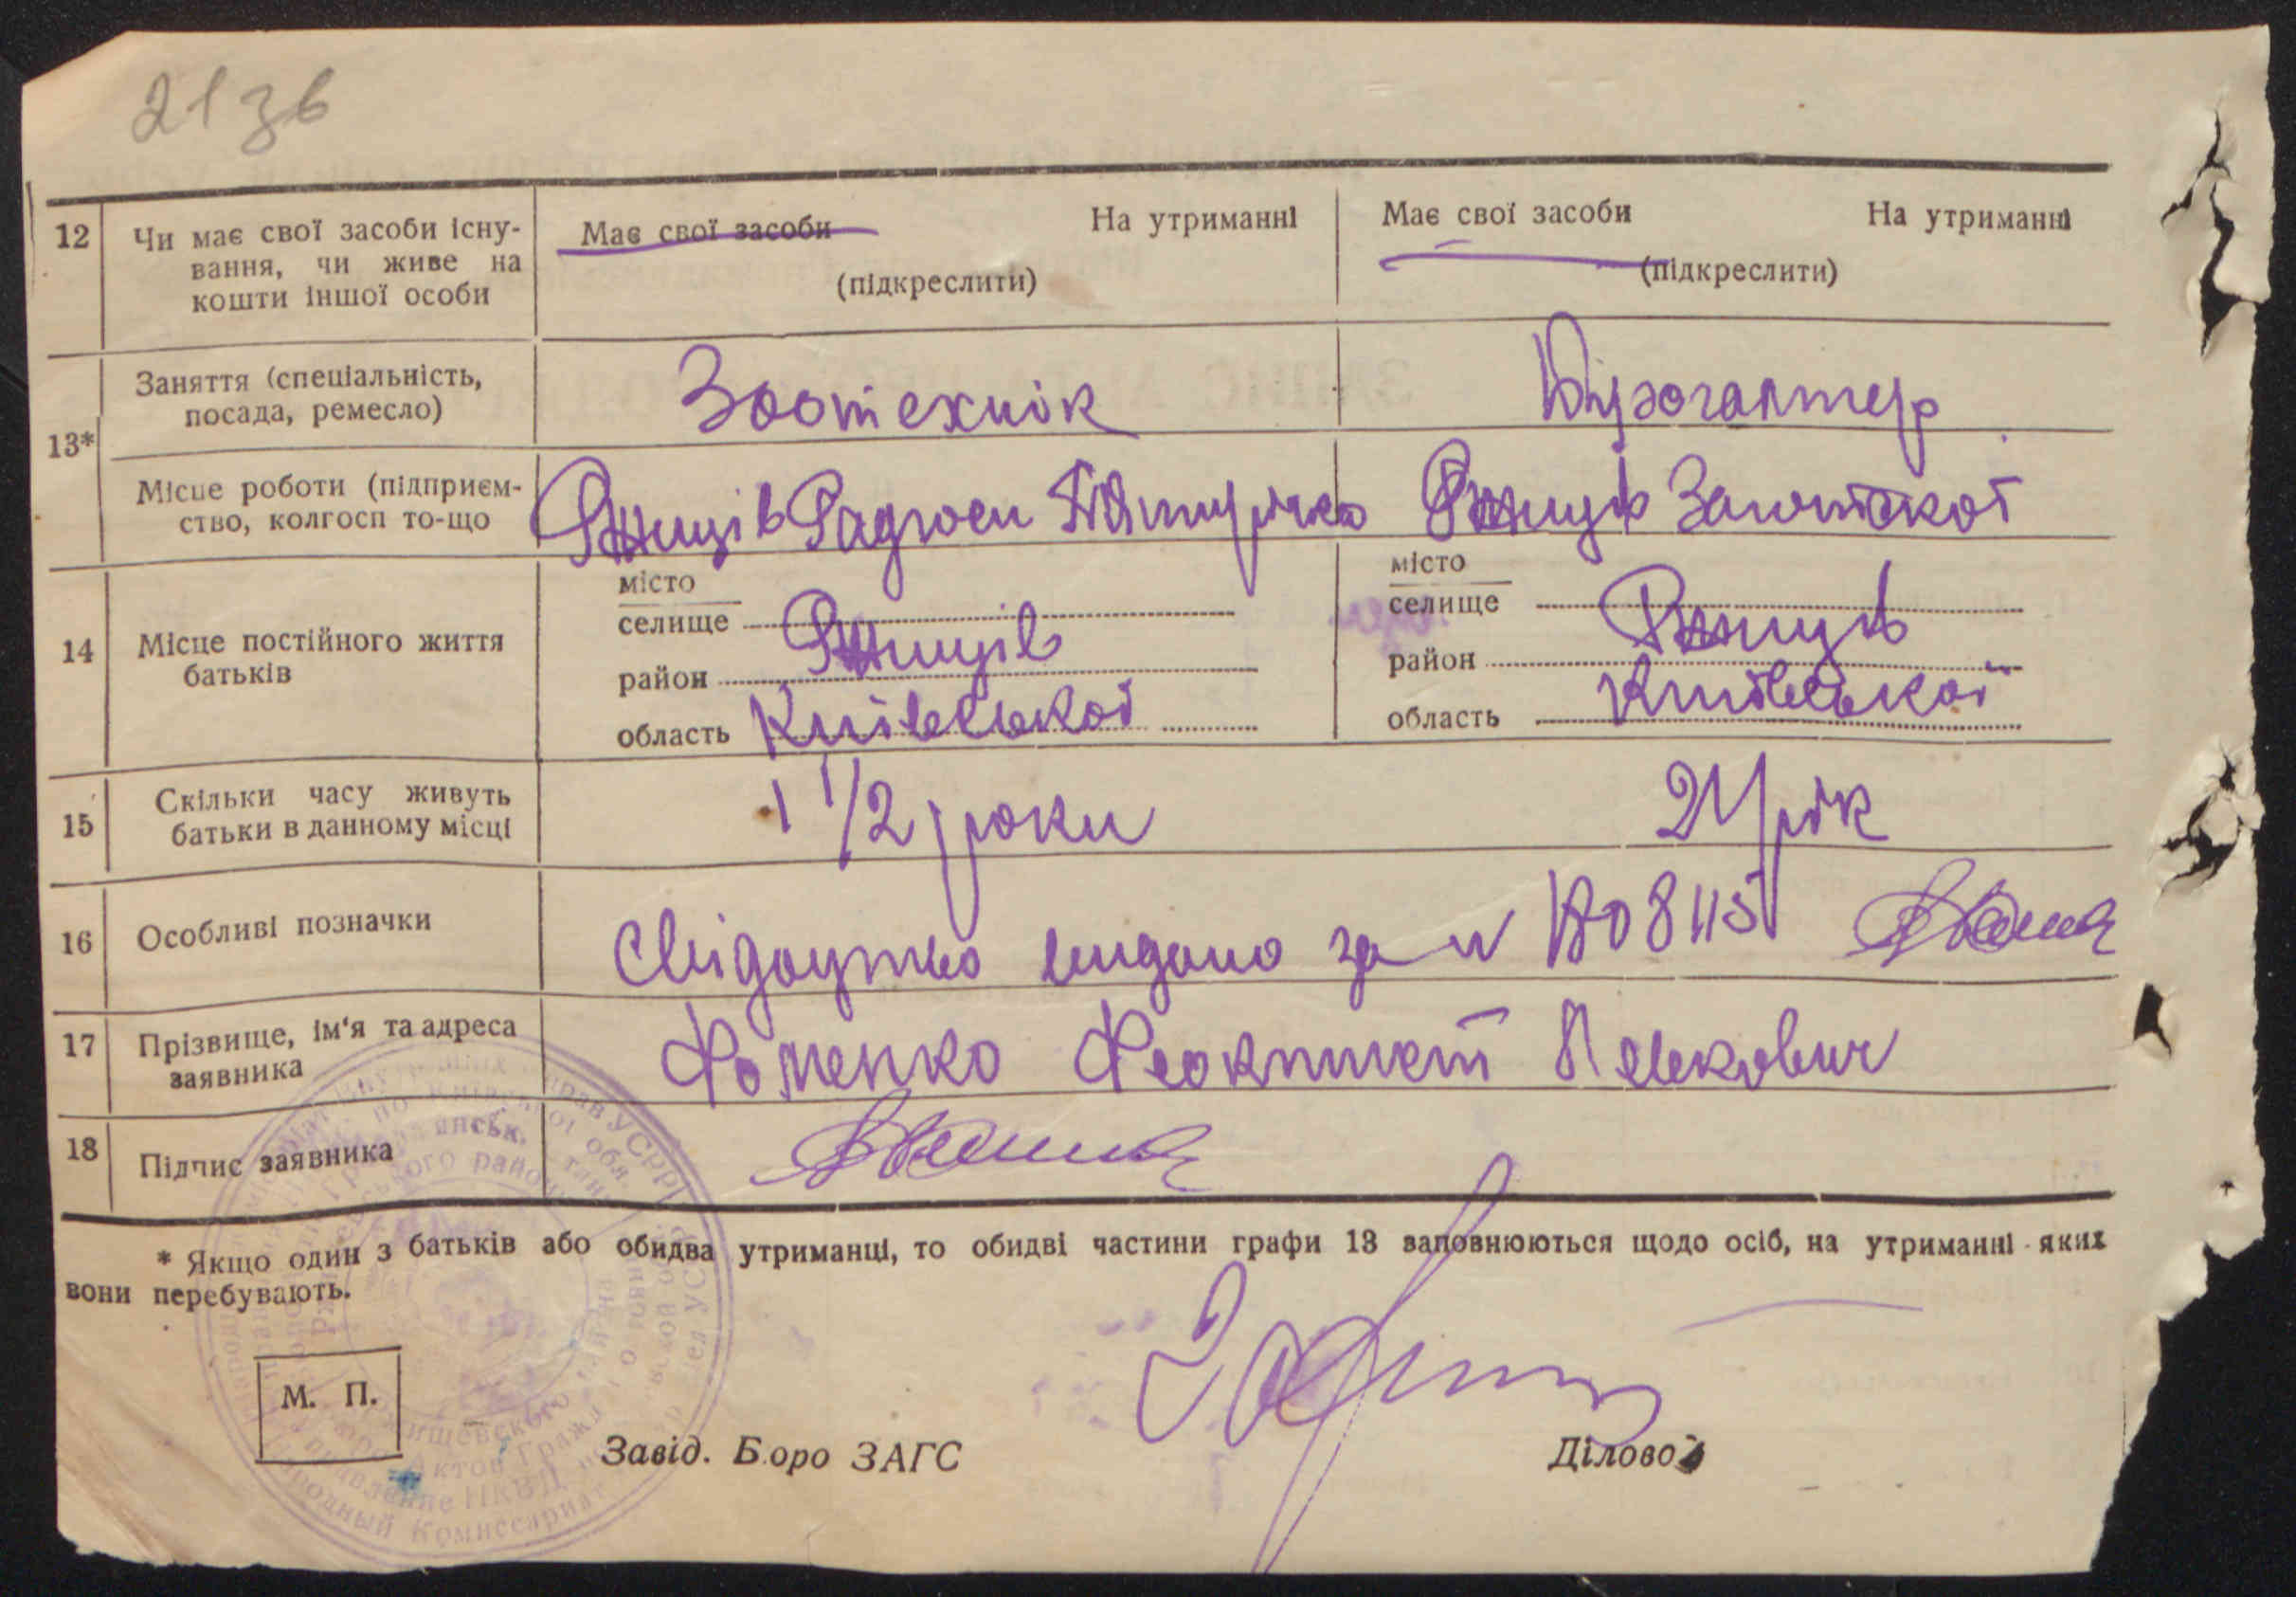 21 зв
12 Чи має свої засоби існу- Має свої засоби На утриманні Має свої засоби На утриманні
вання, чи живе на (підкреслити) (підкреслити)
кошти іншої особи
13* Заняття (спеціальність, Зоотехнік Бухгалтер
посада, ремесло)
Місце роботи (підприєм- Ржищів Ржищів
ство, колгосп то-що
14 Місце постійного життя батьків
місто місто
селище Ржищів селище Ржищів
район район
область Київської область Київської
15 Скільки часу живуть 1 1/2 роки 21 рік
батьки в данному місці
16 Особливі позначки Свідоцтво видано за № 108115
17 Прізвище, ім‘я та адреса Фоменко Феоктист
заявника
18 Підпис заявника
* Якщо один з батьків або обидва утриманці, то обидві частини графи 13 заповнюються щодо осіб, на утриманні яких
вони перебувають.
М. П.
Завід. Бюро ЗАГС Діловод